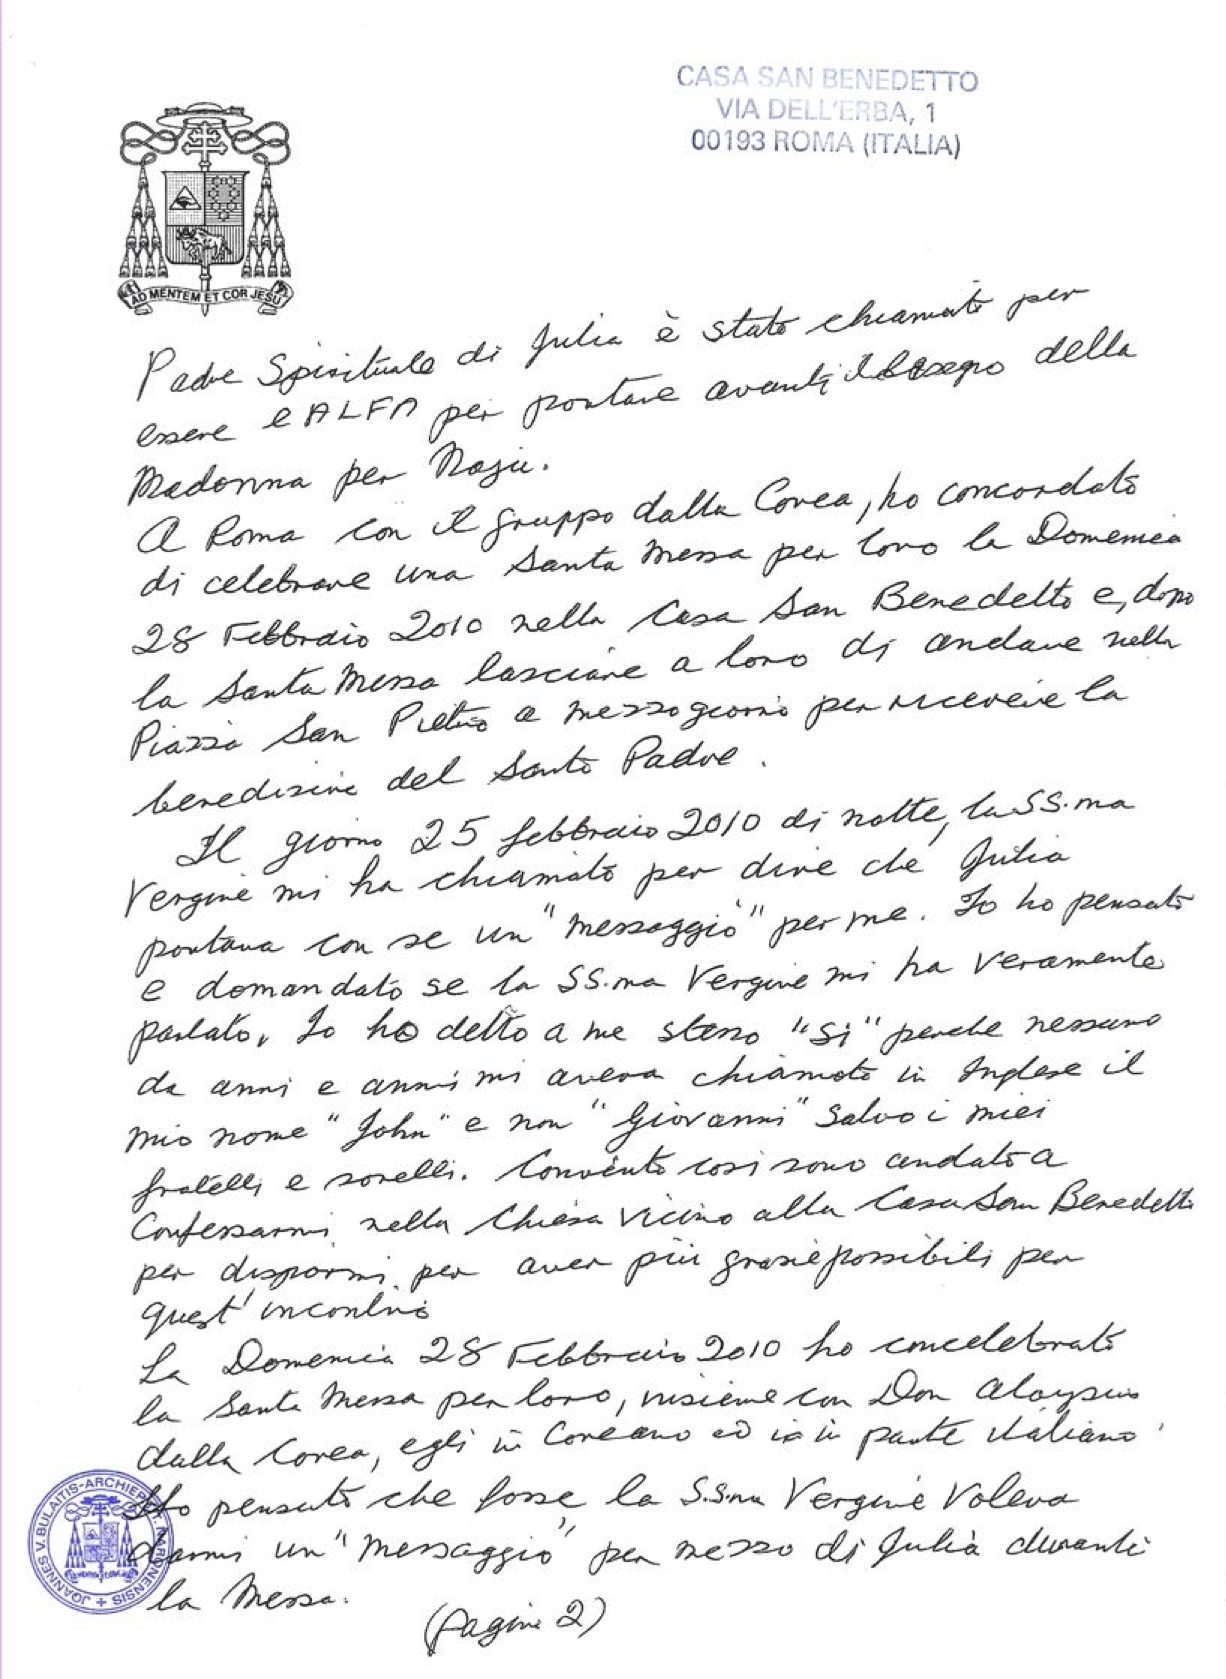 CASA SAN BENEDETTO
VIA DELL'ERBA, 1
00193 ROMA (ITALIA)
AD MENTEM ET COR JESU
Padre Spirituale di Julia è stato chiamato per
essere e ALFA per portare avanti il disegno della
Madonna per Naju.
A Roma con il gruppo dalla Corea, ho concordato
di celebrare una Santa Messa per loro la Domenica
28 Febbraio 2010 nella Casa San Benedetto e, dopo
la Santa Messa lasciare a loro di andare nella
Piazza San Pietro a mezzogiorno per ricevere la
benedizine del Santo Padre.
Il giorno 25 febbraio 2010 di notte, la SS.ma
Vergine mi ha chiamato per dire che Julia
portava con se un "messaggio" per me. Io ho pensato
e domandato se la SS.ma Vergine mi ha veramente
parlato. Io ho detto a me stesso "Si" perche nessuno
da anni e anni mi aveva chiamato in Inglese il
mio nome "John" e non "Giovanni" Salvo i miei
fratelli e sorelli. Convinto cosi sono andato a
Confessarmi nella Chiesa vicino alla Casa San Benedetto
per dispormi per aver più grazie possibili per
quest'incontro
La Domenica 28 Febbraio 2010 ho concelebrato
la Santa Messa per loro, insieme con Don Aloysius
dalla Corea, egli in Coreano ed io in parte italiano.
Ho pensato che forse la S.S.ma Vergine Voleva
darmi un "Messaggio" per mezzo di Julia durante
la Messa.
(Pagina 2)
JOANNES V. BULAITIS-ARCHIEP. NARONENSIS